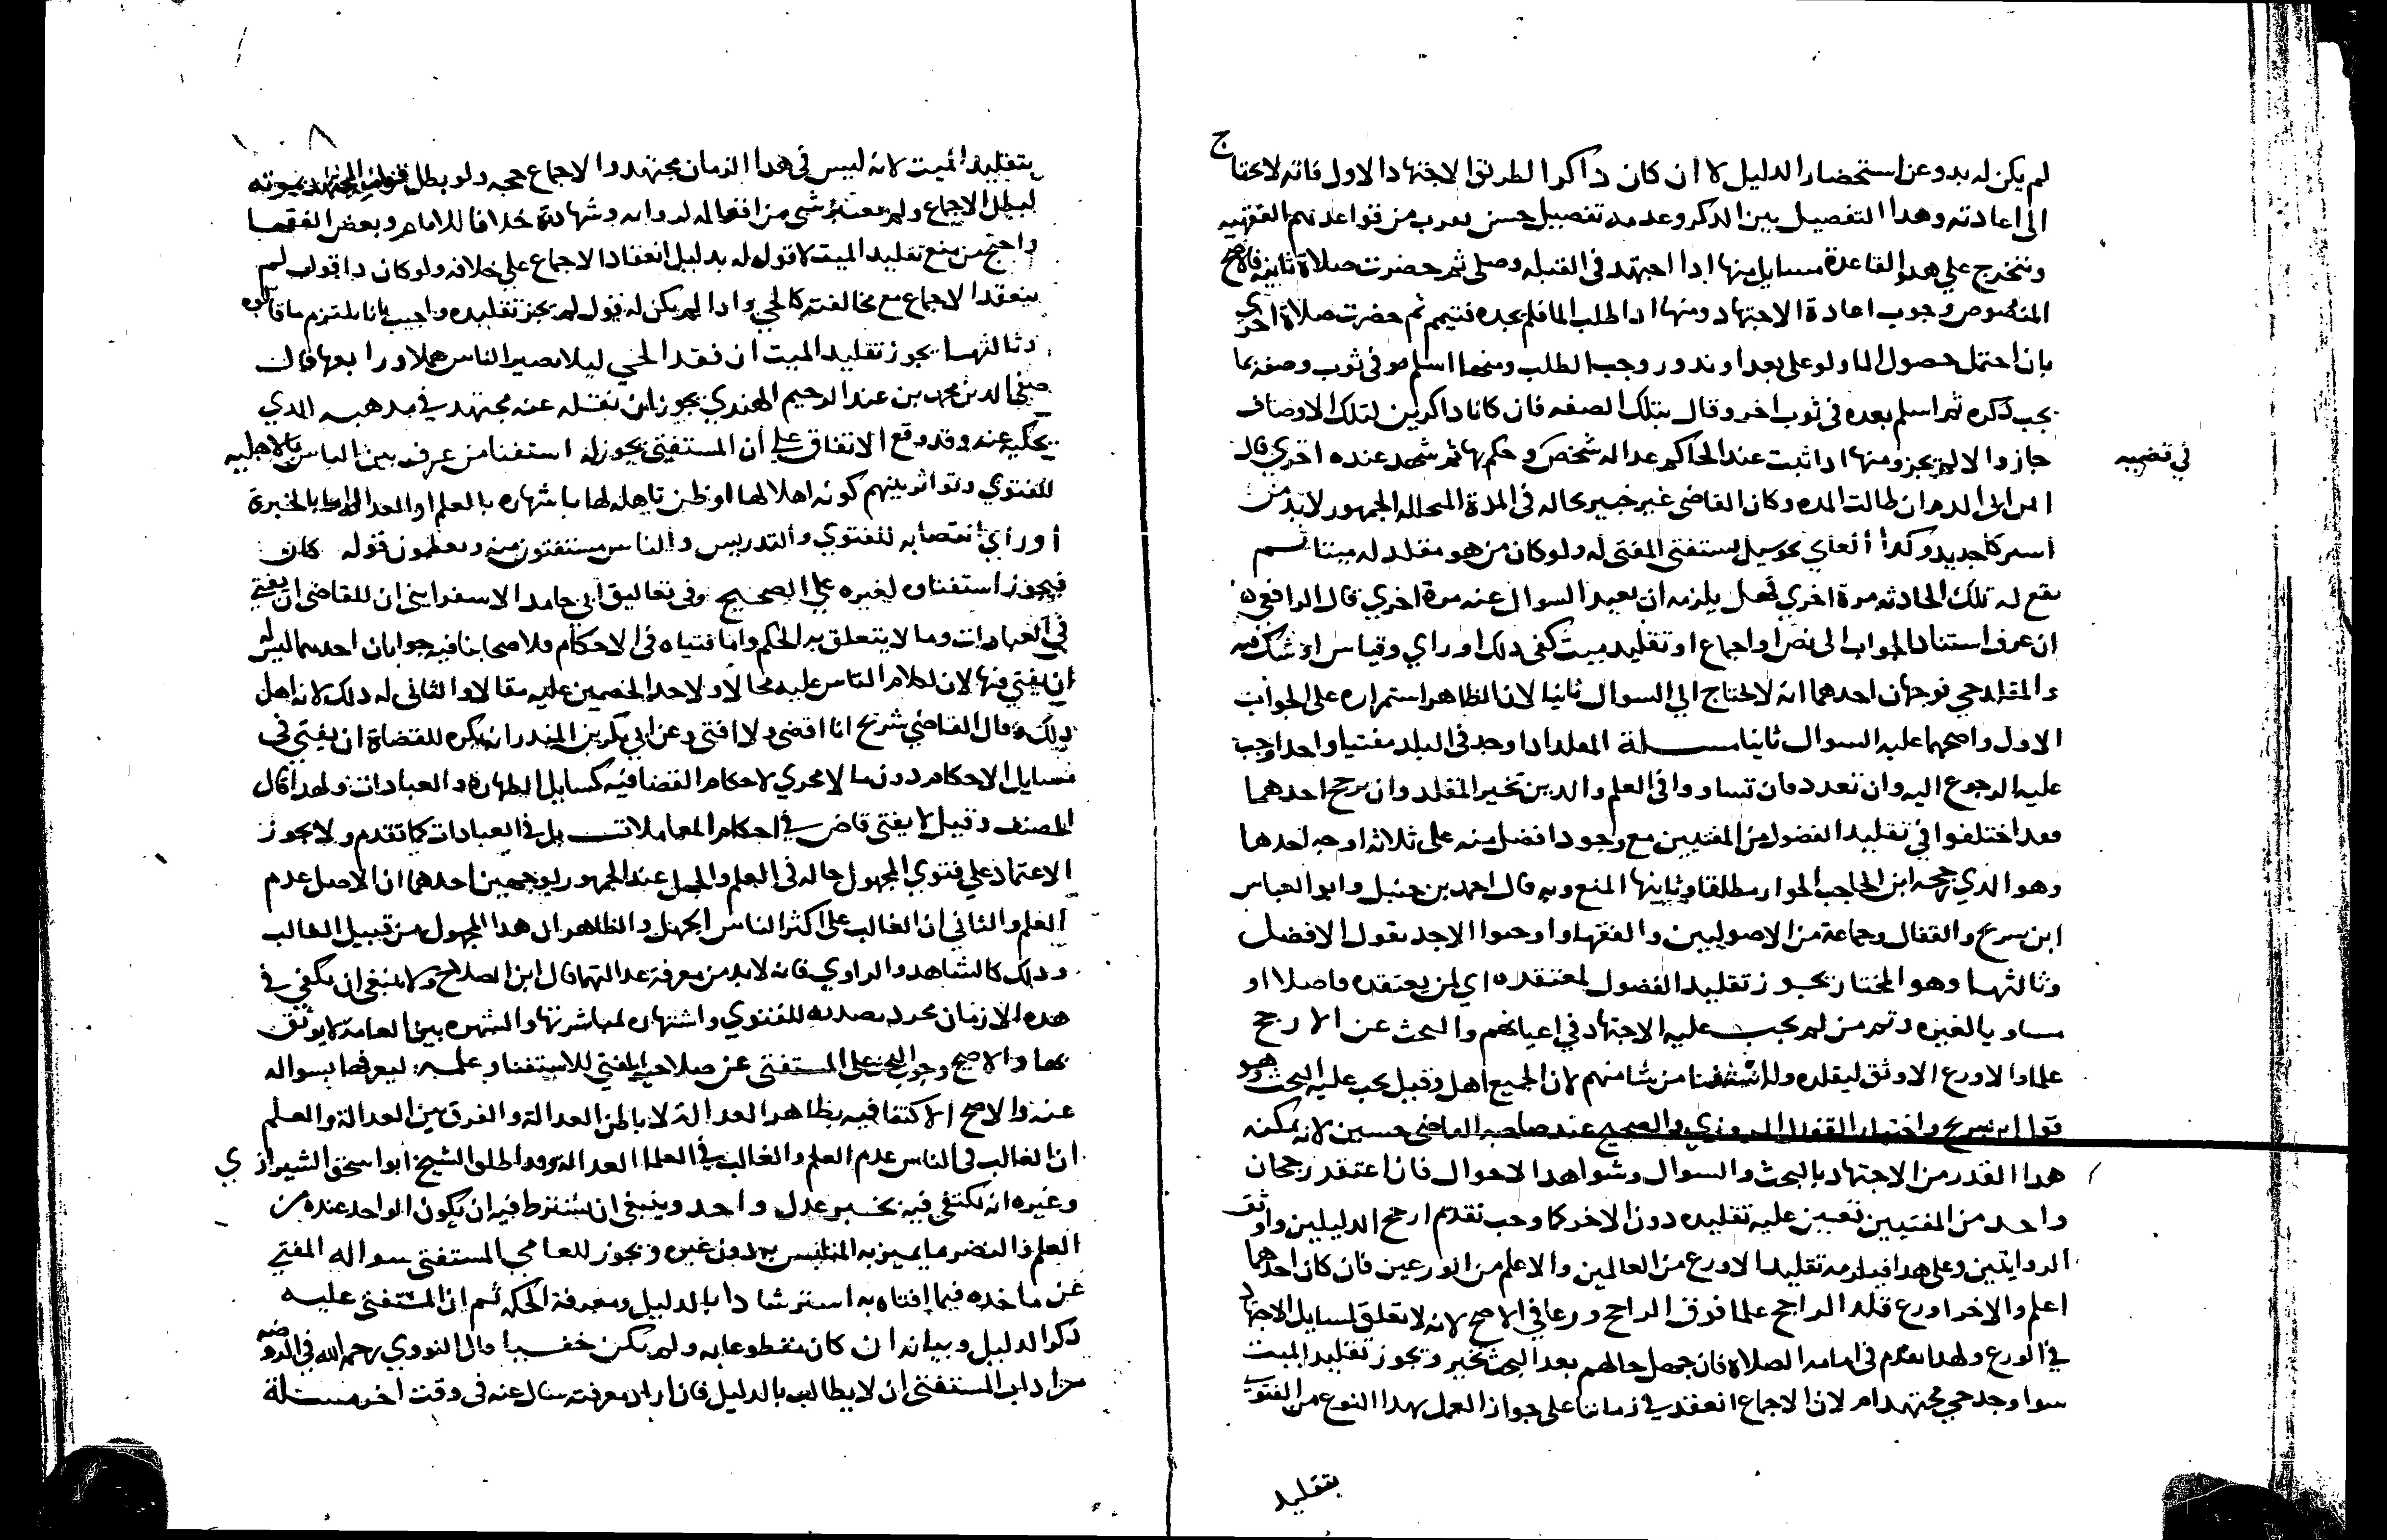 لم يكن له بد وعن استحضار الدليل لا ان كان ذاكرا لطريق الاجتهاد الاول فانه لا يحتاج
الى اعادته وهذا التفصيل بين الذكر وعدمه تفصيل حسن يعرب من قواعدهم الفقهيه
وتتخرج علي هذه القاعدة مسايل منها اذا اجتهد في القبله وصلى ثم حضرت صلاة ثانيه فالاصح
المنصوص وجوب اعادة الاجتهاد ومنها اذا طلب الما فلم يجده فتيمم ثم حضرت صلاة اخري
بان احتمل حصول الما ولو على بعد او ندور وجب الطلب ومنها اسلم في ثوب وصفه بما
يجب ذكره ثم اسلم بعده في ثوب اخر وقال بتلك الصفه فان كانا ذاكرين لتلك الاوصاف
جاز والا لم يجز ومنها اذا ثبت عند الحاكم عدالة شخص وحكم بها ثم شهد عنده اخري قال
في قضيه
ان طالت المده وكان القاضي غير خبير بحاله في المدة المتخلله الجمهور لا بد من
وكذا العامي يستفتي المفتي له ولو كان من هو مقلد له ميتا ثم
تقع له تلك الحادثه مرة اخري فهل يلزمه ان يعيد السوال عنه مرة اخري قال الرافعي
ان عرف استناد الجواب الى نص او اجماع او تقليد ميت كفى ذلك او راي وقياس او شك فيه
والمقلد حي فوجهان احدهما انه لا يحتاج الي السوال ثانيا لان الظاهر استمراره على الجواب
الاول واصحهما عليه السوال ثانيا مسلة المقلد اذا وجد في البلد مفتيا واحدا وجب
عليه الرجوع اليه وان تعدد فان تساووا في العلم والدين تخير المقلد وان ترجح احدهما
فقد اختلفوا في تقليد المفضول من المفتيين مع وجود افضل منه على ثلاثة اوجه احدها
وهو الذي رجحه ابن الحاجب الجواز مطلقا وثانيها المنع وبه قال احمد بن حنبل وابو العباس
ابن سريج والقفال وجماعة من الاصوليين والفقها واوجبوا الاخذ بقول الافضل
وثالثها وهو المختار يجوز تقليد المفضول لمعتقده اي لمن يعتقده فاضلا او
مساويا لغيره ومن ثم لم يجب عليه الاجتهاد في اعيانهم والبحث عن الارجح
علما والاورع الاوثق ليقلده وله استفتا من شا منهم لان الجميع اهل وقيل يجب عليه البحث وهو
قول ابن سريج واختيار القفال المروزي والصحيح عند صاحبه القاضي حسين لانه يمكنه
هذا القدر من الاجتهاد بالبحث والسوال وشواهد الاحوال فان اعتقد رجحان
واحد من المفتيين تعين عليه تقليده دون الاخر كما وجب تقديم ارجح الدليلين واوثق
الروايتين وعلى هذا فيلزمه تقليد الاورع من العالمين والاعلم من الورعين فان كان احدهما
اعلم والاخر اورع قلد الراجح علما فوق الراجح ورعا في الاصح لانه لا تعلق لمسايل الاجتهاد
في الورع ولهذا تقدم في امامة الصلاة فان جهل حالهم بعد البحث تخير ويجوز تقليد الميت
سوا وجد حي مجتهد ام لا لان الاجماع انعقد في زماننا على جواز العمل بهذا النوع من الفتوي
بتقليد
بتقليد الميت لانه ليس في هذا الزمان مجتهد والاجماع حجه ولو بطل قول المجتهد بموته
لبطل الاجماع ولم يعتبر شي من افعاله لروايه وشهادة خلافا للامام وبعض الفقها
واحتج من منع تقليد الميت لا قول له بدليل انعقاد الاجماع علي خلافه ولو كان ذا قول لم
ينعقد الاجماع مع مخالفته كالحي واذا لم يكن له قول لم يجز تقليده واجيب بانا نلتزم ما قالوه
وثالثها يجوز تقليد الميت ان فقد الحي ليلا يصير الناس هملا ورابعها قال
صفي الدين محمد بن عبد الرحيم الهندي يجوز ان نقله عنه مجتهد في مذهبه الذي
يحكيه عنه وقد وقع الاتفاق علي ان المستفتي يجوز له استفتا من عرف بين الناس بالاهليه
للفتوي وتواتر بينهم كونه اهلا لها او ظن تاهله لها باشتهاره بالعلم والعداله اما بالخبرة
او راي انتصابه للفتوي والتدريس والناس مستفتون منه ويعظمون قوله كان
فيجوز استفتاوه لغيره علي الصحيح وفي تعاليق ابي حامد الاسفرايني ان للقاضي ان يفتي
في العبادات وما لا يتعلق به الحكم واما فتياه في الاحكام فلاصحابنا فيه جوابان احدهما ليس له
ان يفتي فيها لان لكلام الناس عليه مجالا ولاحد الخصمين عليه مقالا والثاني له ذلك لانه اهل
لذلك وقال القاضي شريح انا اقضي ولا افتي وعن ابي بكر بن المنذر انه يكره للقضاة ان يفتي في
مسايل الاحكام دون ما لا مجري لاحكام القضا فيه كمسايل الطهاره والعبادات ولهذا قال
المصنف وقيل لا يفتي قاض في احكام المعاملات بل في العبادات كما تقدم ولا يجوز
الاعتماد علي فتوي المجهول حاله في العلم والجهل عند الجمهور لوجهين احدهما ان الاصل عدم
العلم والثاني ان الغالب على اكثر الناس الجهل والظاهر ان هذا المجهول من قبيل الغالب
وذلك كالشاهد والراوي فانه لا بد من معرفة عدالتهما قال ابن الصلاح ولا ينبغي ان يكفي في
هذه الازمان مجرد تصديه للفتوي واشتهاره لمباشرتها والشهره بين العامة لا يوثق
بها والاصح وجوب البحث على المستفتي عن صلاحية المفتي للاستفتا وعلمه ليعرفها بسواله
عنه والاصح الاكتفا فيه بظاهر العدالة لا باطن العدالة والفرق بين العدالة والعلم
ان الغالب في الناس عدم العلم والغالب في العلما العدالة وقد اطلق الشيخ ابو اسحق الشيرازي
وغيره انه يكتفي فيه بخبر عدل واحد وينبغي ان يشترط فيه ان يكون الواحد عنده من
العلم والبصر ما يميز به الملتبس به دون غيره ويجوز للعامي المستفتي سواله المفتي
عن ماخذه فيما افتاه به استرشادا بالدليل ومعرفة الحكم ثم ان المستفتي عليه
ذكر الدليل وبيانه ان كان مقطوعا به ولم يكن خفيا قال النووي رحمه الله في الروضه
من اداب المستفتي ان لا يطالب بالدليل فان اراد معرفته سال عنه في وقت اخر مسئلة